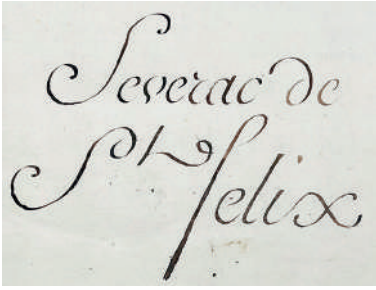 Severac de
St felix